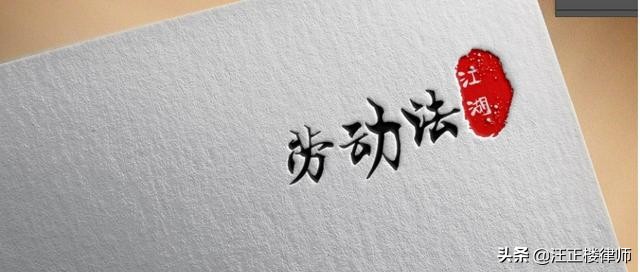 劳动法
江湖
头条 @汪正楼律师